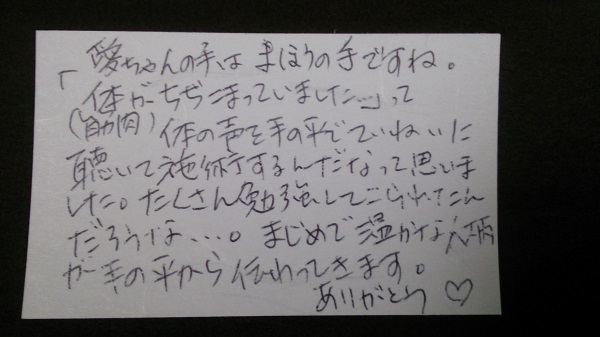 愛ちゃんの手は まほうの手ですね。
「体がちぢこまっていました…」って
(筋肉) 体の声を手の平でていねいに
聴いて施術するんだなって思いま
した。たくさん勉強してこられたん
だろうな…。まじめで温かな人柄
が手の平から伝わってきます。
ありがとう♡